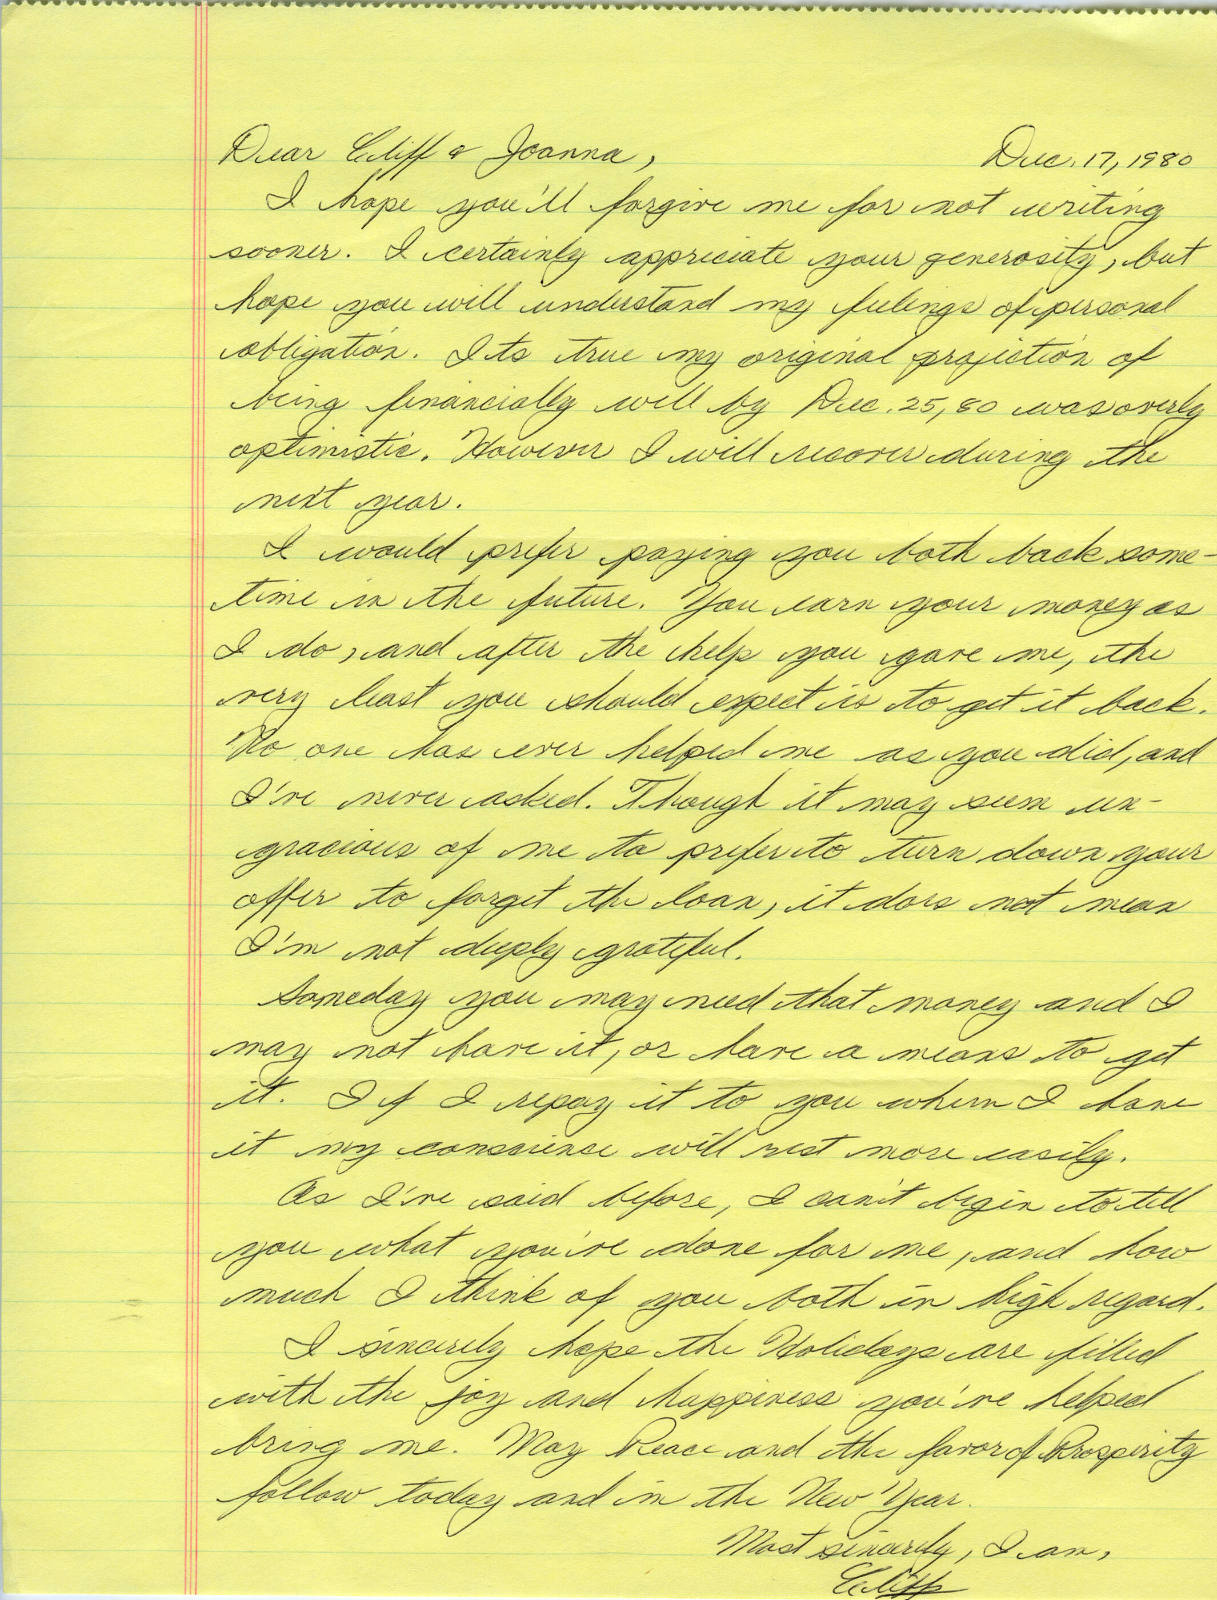 Dear Cliff & Joanna,
Dec. 17, 1980
I hope you'll forgive me for not writing
sooner. I certainly appreciate your generosity, but
hope you will understand my feelings of personal
obligation. Its true my original projection of
being financially well by Dec. 25, 80 was overly
optimistic. However I will recover during the
next year.
I would prefer paying you both back some-
time in the future. You earn your money as
I do, and after the help you gave me, the
very least you should expect is to get it back.
No one has ever helped me as you did, and
I've never asked. Though it may seem un-
gracious of me to prefer to turn down your
offer to forget the loan, it does not mean
I'm not deeply grateful.
Someday you may need that money and I
may not have it, or have a means to get
it. If I repay it to you when I have
it my conscience will rest more easily.
As I've said before, I can't begin to tell
you what you've done for me, and how
much I think of you both in high regard.
I sincerely hope the Holidays are filled
with the joy and happiness you've helped
bring me. May Peace and the favor of Prosperity
follow today and in the New Year.
Most sincerely, I am,
Cliff